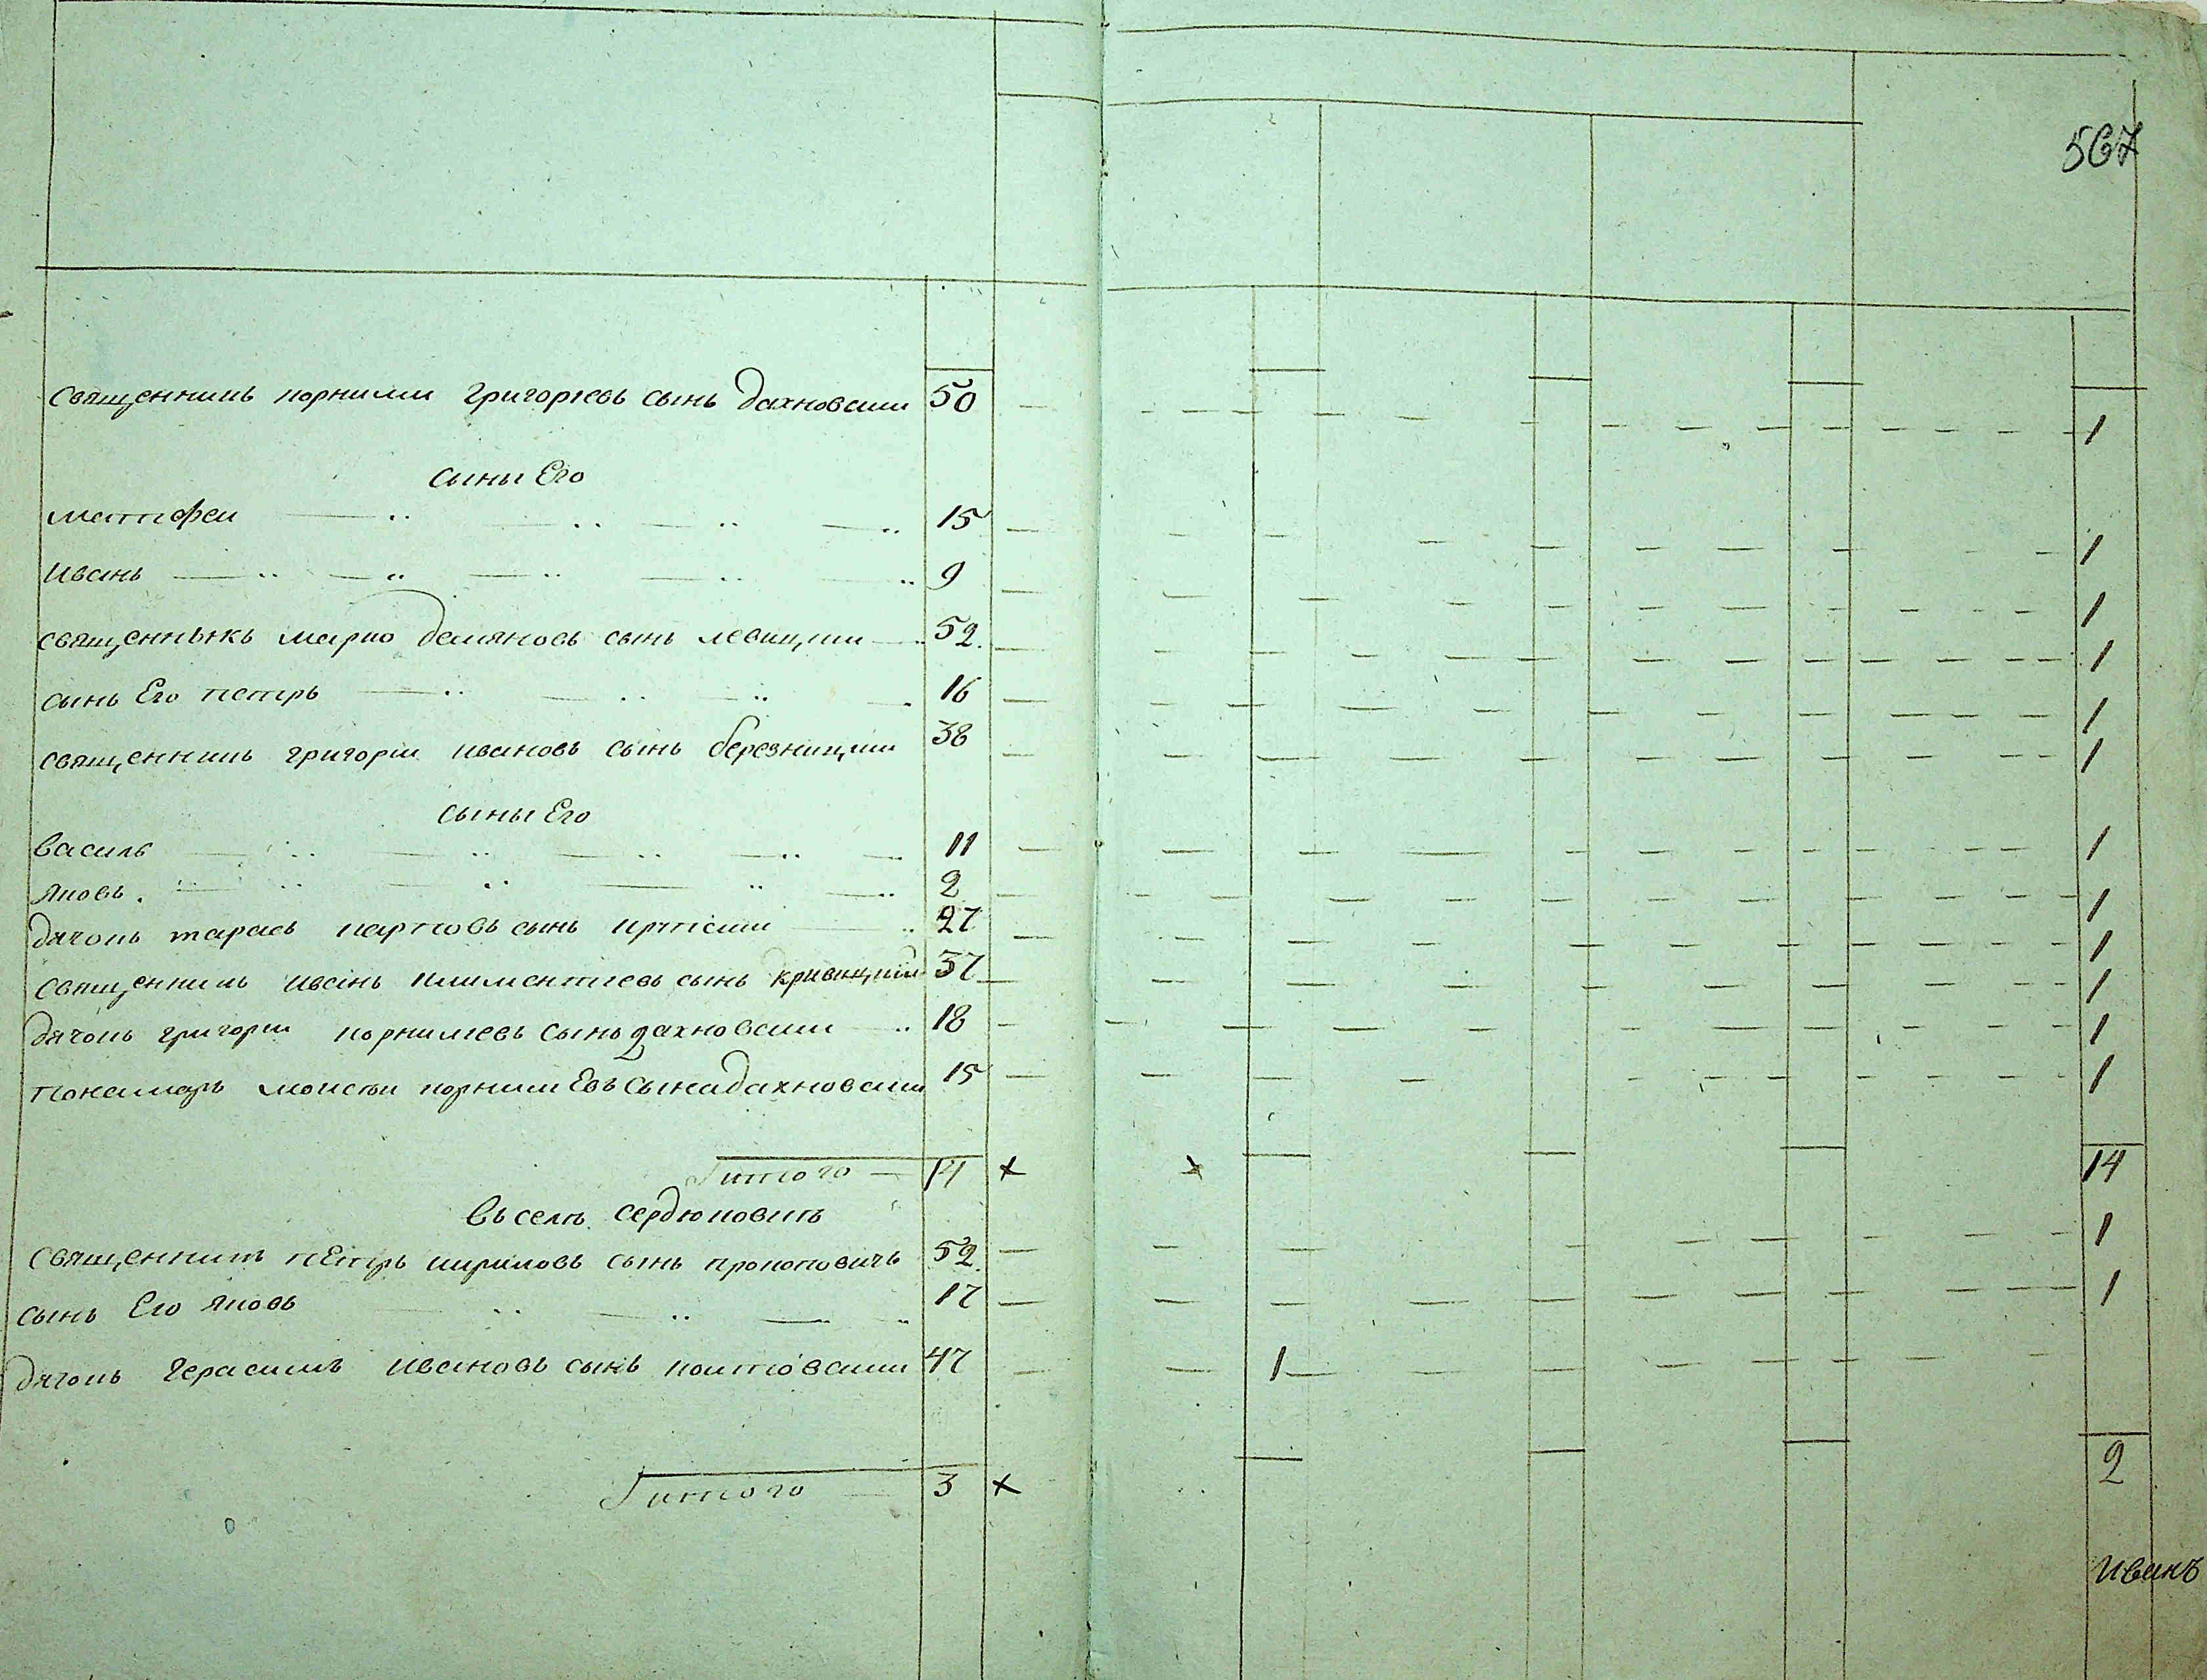 567
Священникъ корнилии григориевъ сынъ дахновскии 50 1
сыны Его
матфеи 15 1
Иванъ 9 1
священныкъ марко демяновъ сынъ левицкии 52 1
сынъ Его петръ 16 1
священникъ григории ивановъ сынъ березницкии 38 1
сыны Его
василь 11 1
яковъ 2 1
дячокъ тарасъ карповъ сынъ 27 1
священникъ иванъ климентиевъ сынъ кривицкий 37 1
дячокъ григории корнилиевъ сынъ дахновскии 18 1
понамаръ моисеи корнилиЕвъ сынъ дахновскии 15 1
Итого 14 × × 14
въ селѣ сердюковкѣ
священникъ пЕтръ кириловъ сынъ прокоповичъ 52 1
сынъ Его яковъ 17 1
дячокъ герасимъ ивановъ сынъ коитовскии 47 1
Итого 3 × 2
иванъ